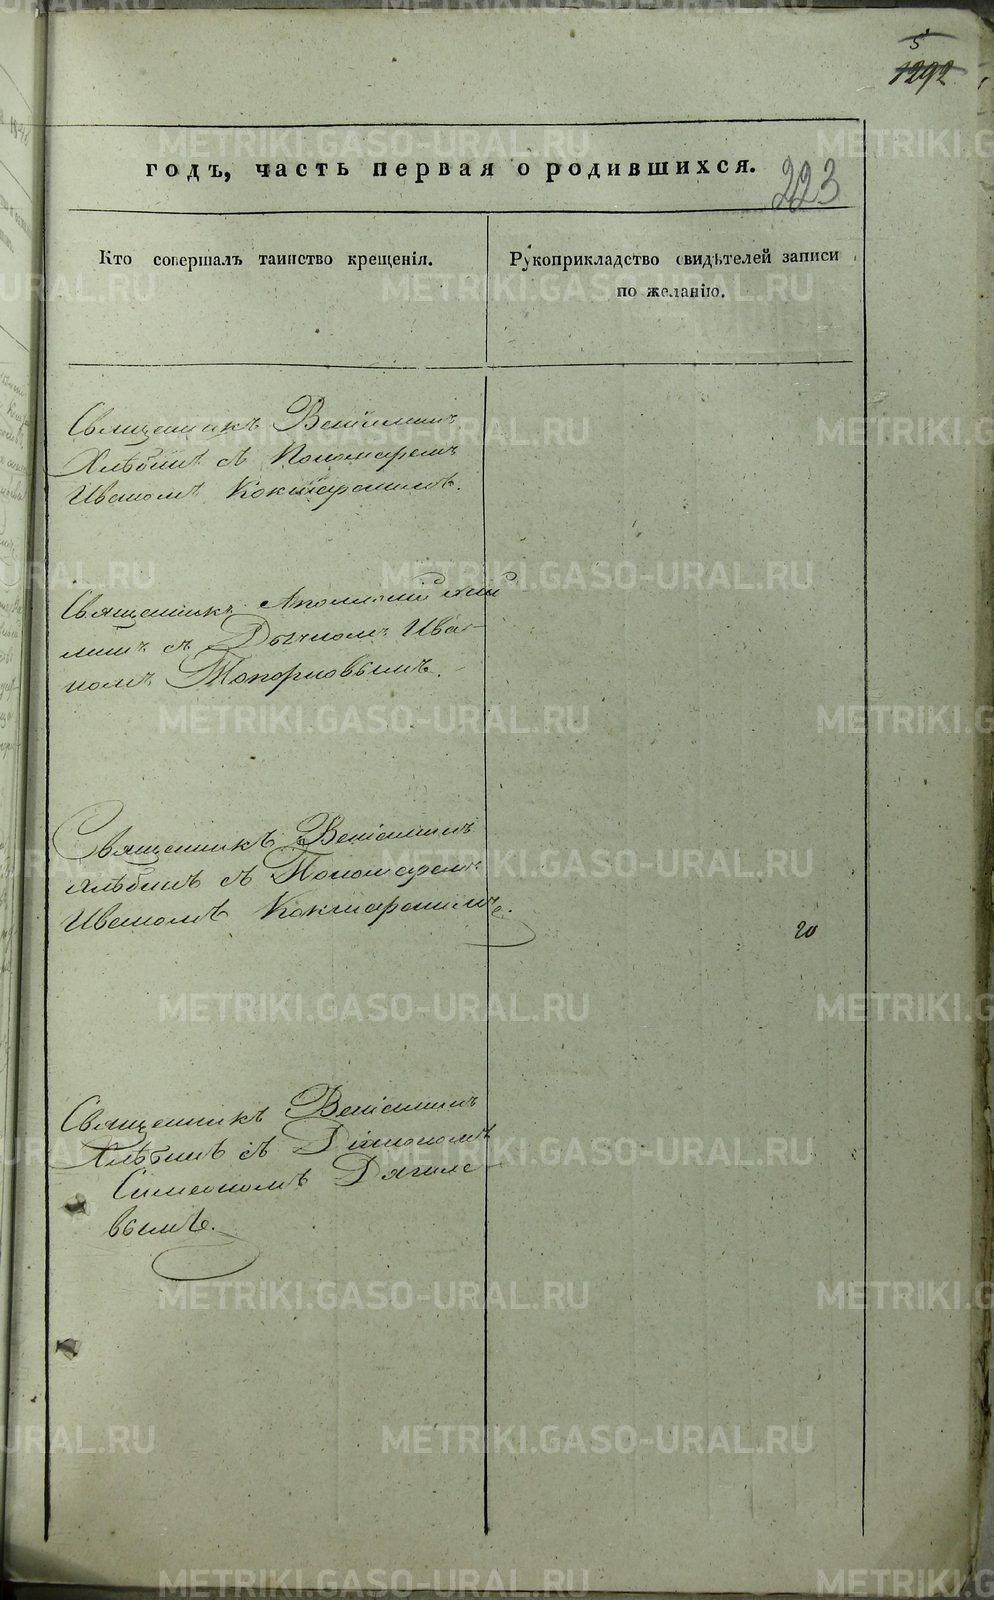 5
1292
годъ, часть первая о родившихся.
223
Кто совершалъ таинство крещенія.
Рукоприкладство свидѣтелей записи
по желанію.
Священникъ Веніаминъ
Хлѣбинъ съ Пономаремъ
Иваномъ Кокшаровымъ.
Священникъ Аполлоній
съ Дьячкомъ Ива-
номъ Топорковымъ.
Священникъ Веніаминъ
Хлѣбинъ съ Пономаремъ
Иваномъ Кокшаровымъ.
20
Священникъ Веніаминъ
Хлѣбинъ съ Діакономъ
Симеономъ Дягиле
вымъ.
METRIKI.GASO-URAL.RU